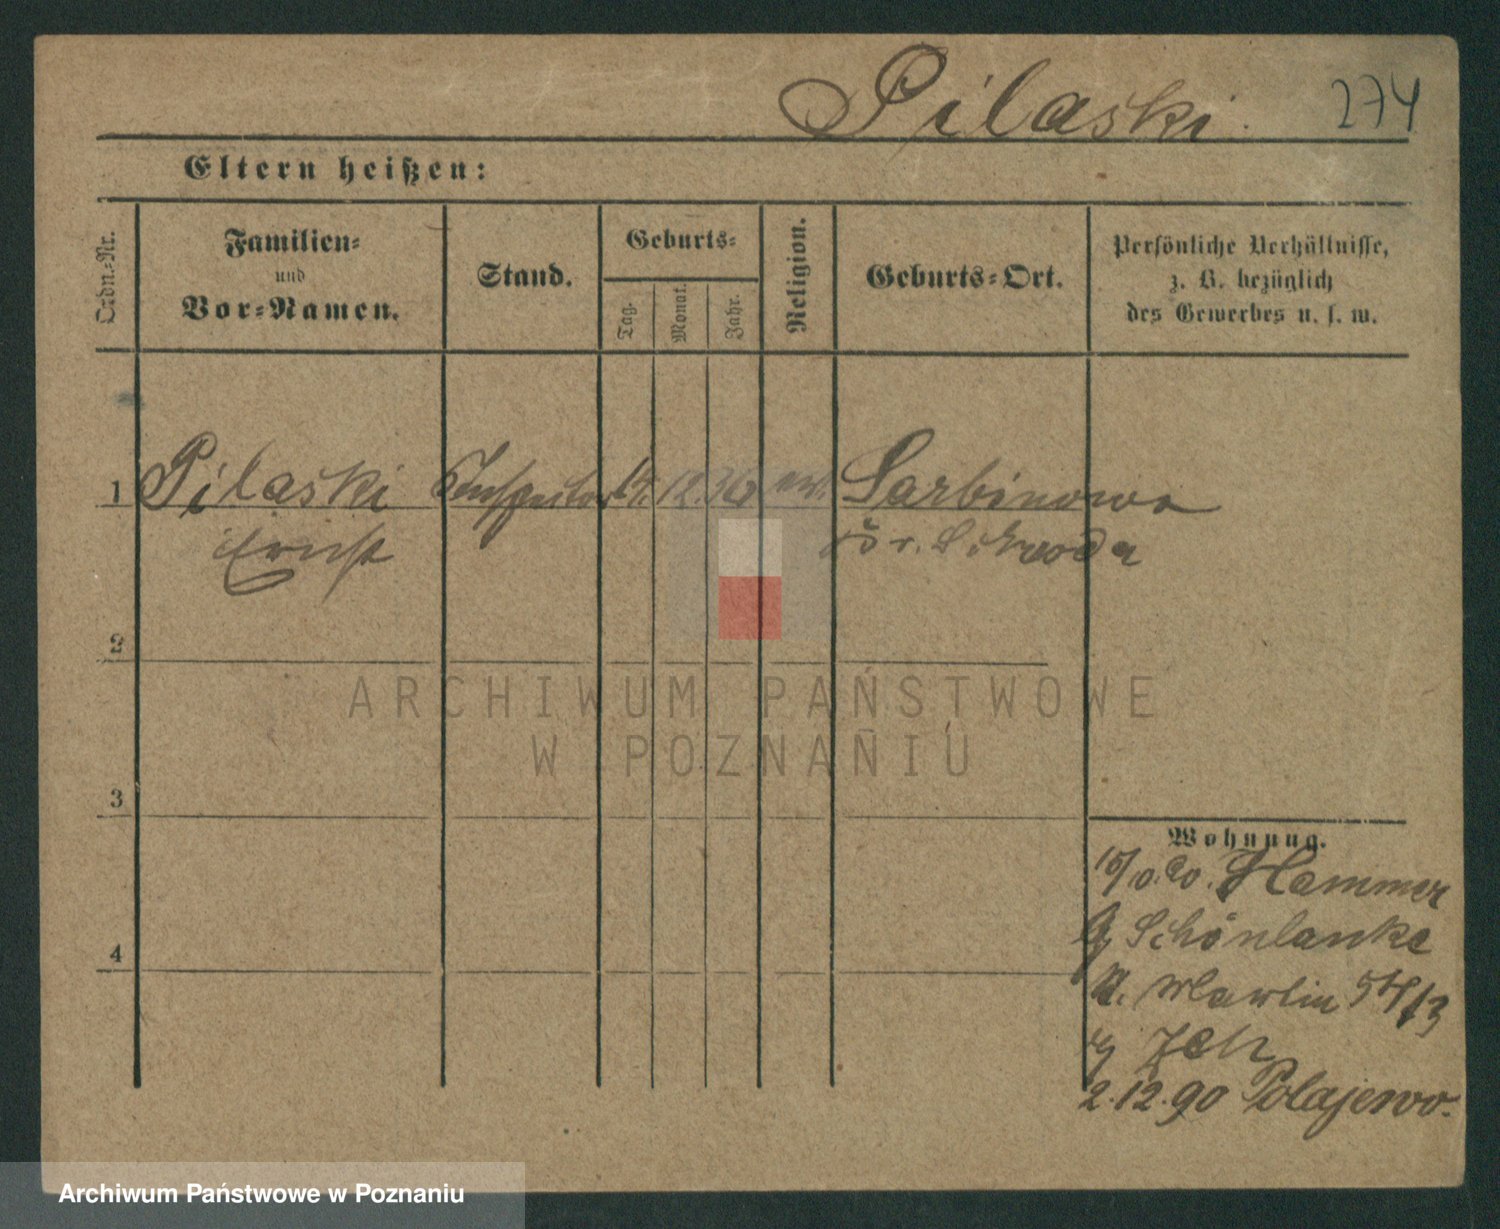 Pilaski 274
Eltern heißen:
Ordn.-Nr.
Familien-
und
Vor-Namen.
Stand.
Geburts-
Tag.
Monat.
Jahr.
Religion.
Geburts-Ort.
Persönliche Verhältnisse,
z. B. bezüglich
des Gewerbes u. s. w.
1 Pilaski Inspector 14. 12. ev. Sarbinowo
Ernst Kr. Schroda
2
3
4
Wohnung.
Hammer
Schönlanke
St. Martin
2.12.90 Polajewo.
ARCHIWUM PAŃSTWOWE
W POZNANIU
Archiwum Państwowe w Poznaniu